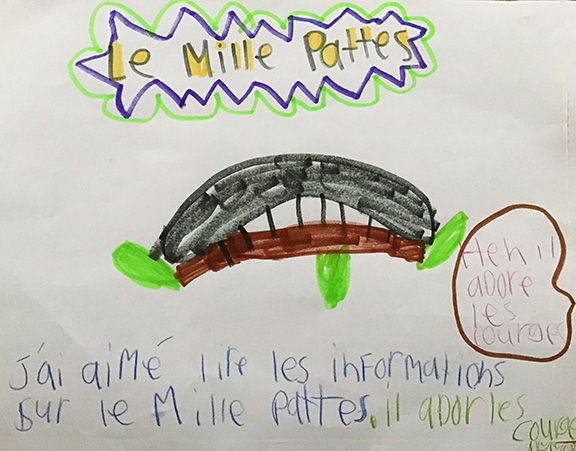 Le Mille Pattes
Heh il
adore
les
courges
j'ai aimé lire les informations
sur le Mille Pattes. il ador les
courge